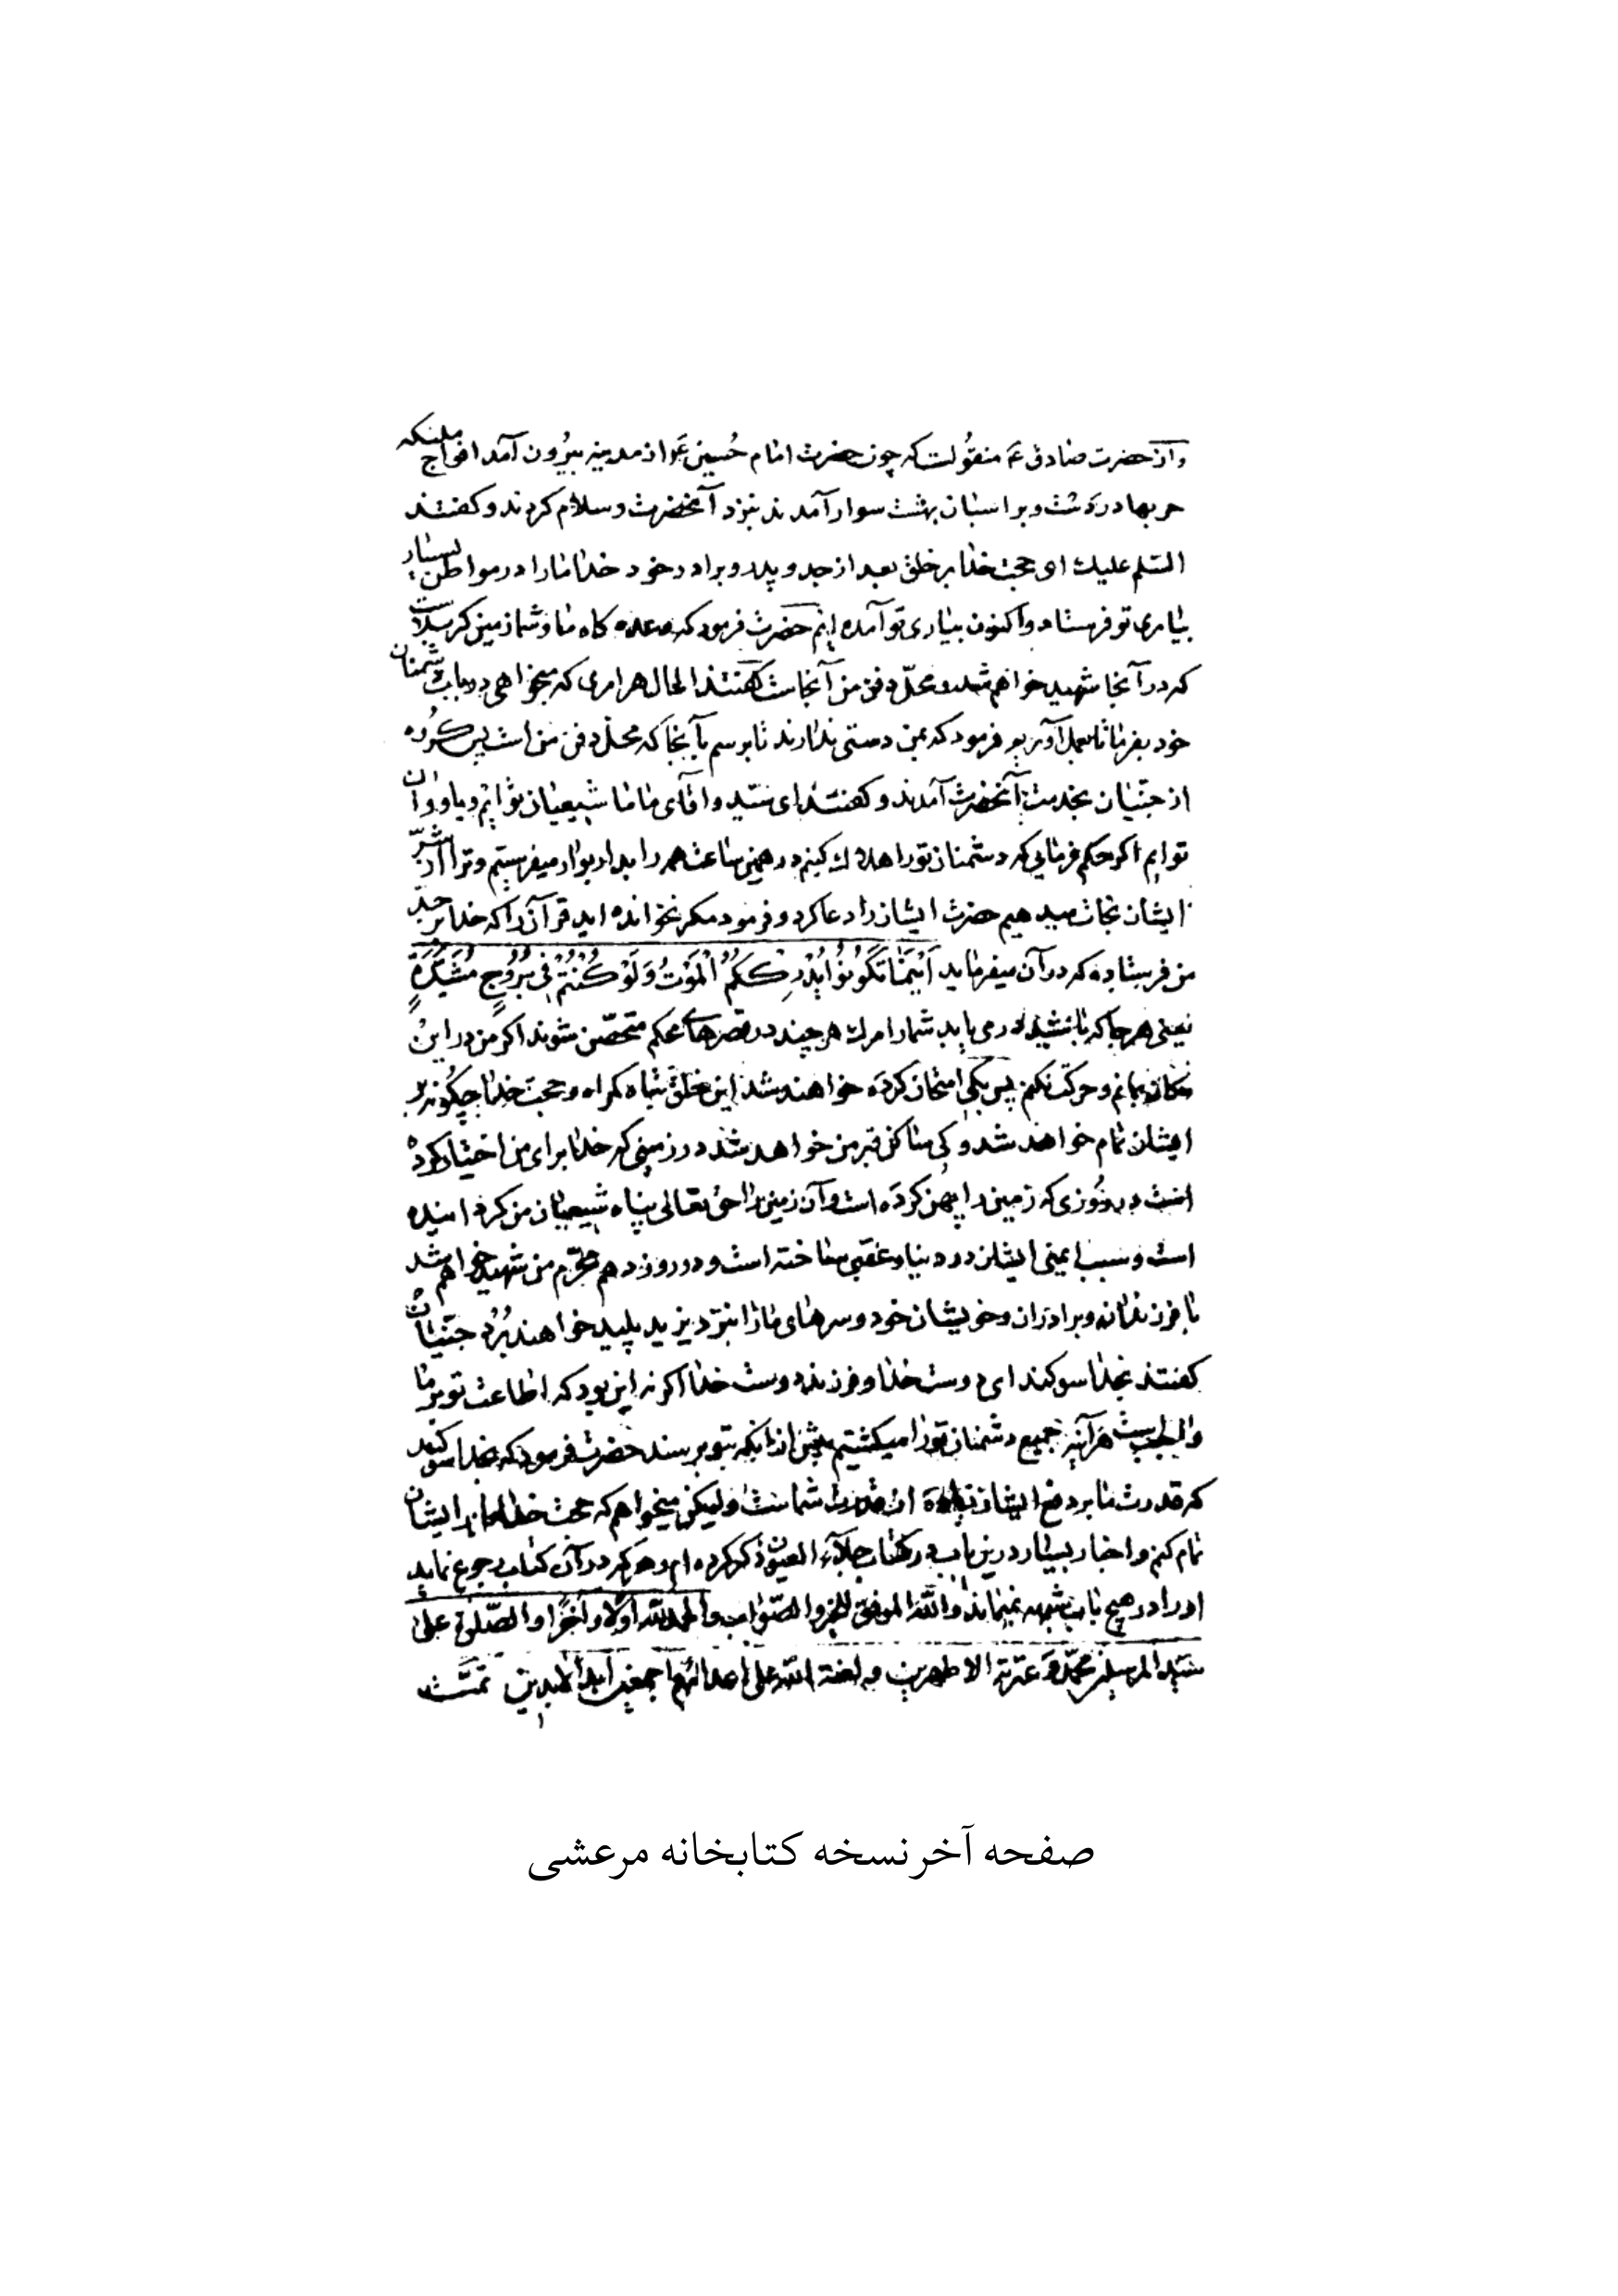 واز حضرت صادق ع منقولست که چون حضرت امام حسین ع از مدینه بیرون آمد افواج ملئکه
حربها در دست و بر اسبان بهشت سوار آمدند بنزد آنحضرت و سلام کردند و کفتند
السلم علیك ای حجت خدا بر خلق بعد از جد و پدر و برادر خود خدا مارا در مواطن بسیار
بیاری تو فرستاد و اکنون بیاری تو آمده ایم حضرت فرمود که وعده کاه ما و شما زمین کربلاست
که در آنجا شهید خواهم شد و محل دفن من آنجاست کفتند الحال هر امری که میخواهی در باب دشمنان
خود بفرما تا بعمل آوریم فرمود که بمن دستی ندارند تا برسم بآنجا که محل دفن من است پس کروه
از جنیان بخدمت آنحضرت آمدند و کفتند ای سید و اقای ما ما شیعیان تو ایم و یاوران
توایم اکر حکم فرمایی که دشمنان تورا هلاك کنیم در همین ساعت همه را بدار بوار میفرستیم و ترا از شر
ایشان نجات میدهیم حضرت ایشان را دعا کرد و فرمود مکر نخوانده اید قرآن را که خدا بر جد
من فرستاده که در آن میفرماید اَیْنَمَا تَکُونُوْا یُدْرِکْکُمُ الْمَوْتُ وَلَوْ کُنْتُمْ فِی بُرُوجٍ مُشَیَّدَةٍ
یعنی هر جا که باشید در می یابد شمارا مرك هر چند در قصرهای محکم متحصّن شوند اکر من در این
مکان بمانم و حرکت نکنم پس بکی امتحان کرده خواهند شد این خلق تباه کمراه و حجت خدا چکونه بر
ایشان تمام خواهد شد و کی ساکن قبر من خواهد شد در زمینی که خدا برای من اختیار کرده
است در روزی که زمین را پهن کرده است و آن زمین را حق تعالی پناه شیعیان من کردانیده
است و سبب ایمنی ایشان در دنیا و عقبی ساخته است و در روز دهم محرّم من شهید خواهم شد
با فرزندان و برادران و خویشان خود و سرهای مارا بنزد یزید پلید خواهند بُرد جنیان
کفتند بخدا سوکند ای دوست خدا و فرزند دوست خدا اکر نه این بود که اطاعت تو بر ما
واجبست هر آینه جمیع دشمنان تورا میکشتیم پیش از انکه بتو برسند حضرت فرمود که بخدا سوکند
که قدرت ما بر دفع ایشان زیاده از قدرت شماست ولیکن میخواهم که حجت خدا را بر ایشان
تمام کنم و اخبار بسیار درین باب در کتاب جلآء العیون ذکر کرده ام و هر که در آن کتاب رجوع نماید
اورا در هیچ باب شبهه نمیماند والله الموفق للخیر والصّواب والحمدلله اولا و آخرًا والصّلوة علی
سید المرسلین محمّد و عترته الاطهرین و لعنة الله علی اعدائهم اجمعین ابد الابدین تمّت
صفحه آخر نسخه کتابخانه مرعشی